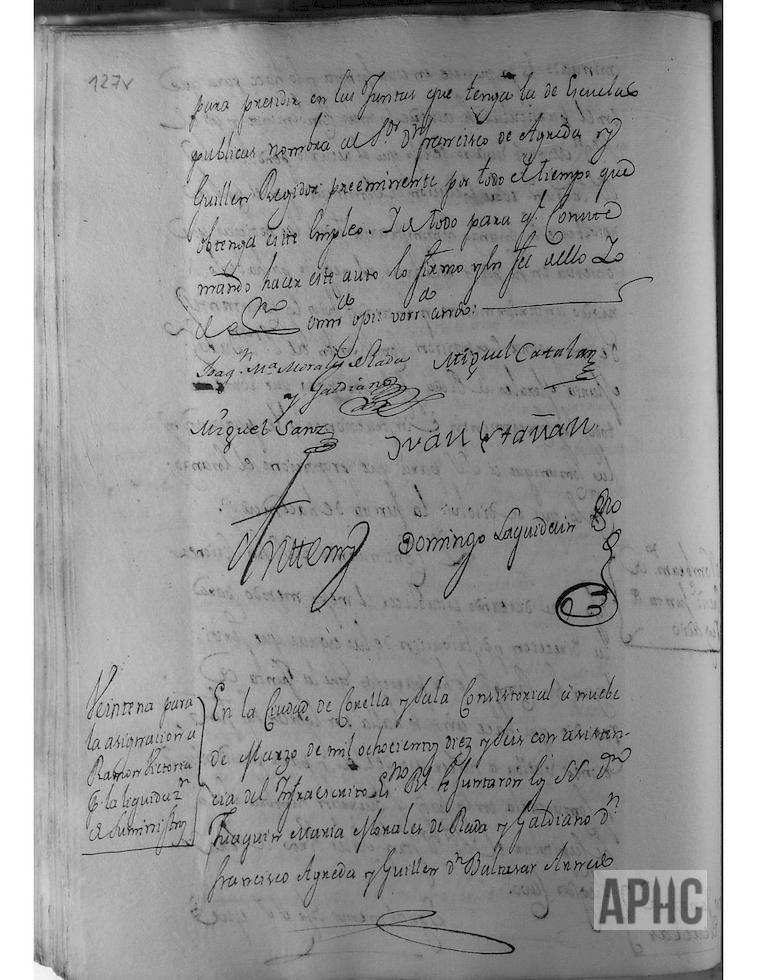 127v
para presidir en las Juntas que tenga la de Escuelas
publicas nombra al S.or D.n Francisco de Agreda y
Guillen Regidor preeminente por todo el tiempo que
obtenga este Empleo. Y de todo para q.e Conste
mandó hacer este auto lo firmo y fee dello Yo
el
Joaq.n M.a Morales de Rada
y Galdiano
Miguel Catalan
Miguel Sanz
Juan
Antte my
Domingo Laguidain
Veintena para
la asignacion a
Ramon Vitoria
la liquidaz.n
de Suministros
En la Ciudad de Corella y Sala Consistorial à nuebe
de Marzo de mil ochocientos diez y seis con asisten-
cia del Infraescrito Es.no R.l se juntaron los SS. D.n
Juaquin Maria Morales de Rada y Galdiano D.n
Francisco Agreda y Guillen D.n Baltasar
APHC